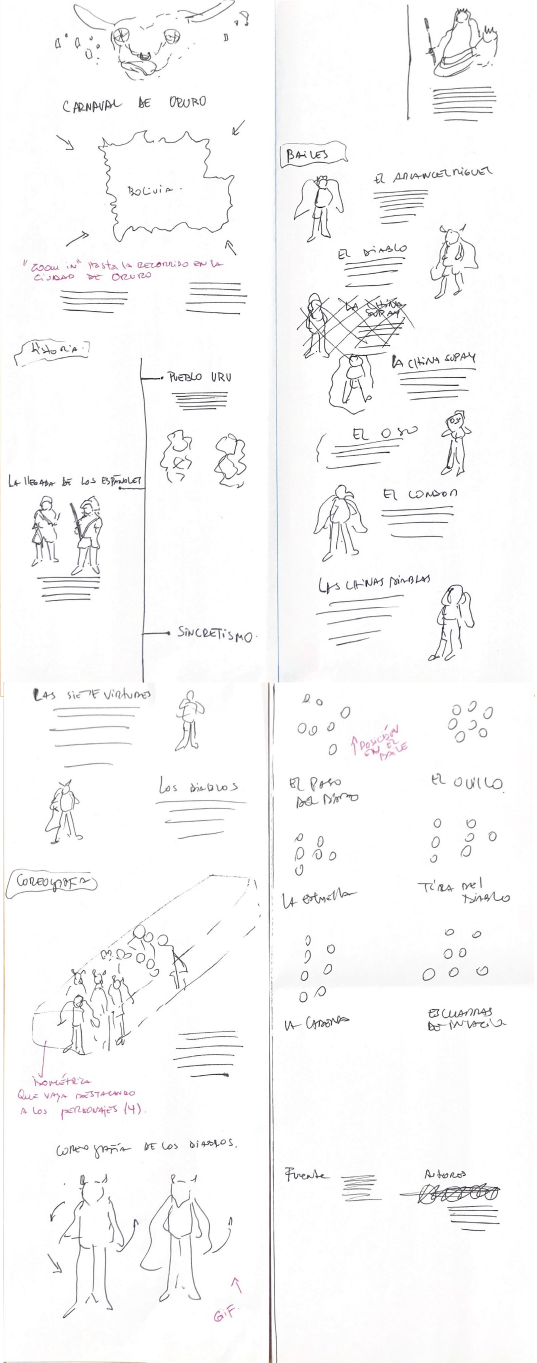 CARNAVAL DE ORURO
BOLIVIA.
"ZOOM IN" HASTA LA RECORRIDO EN LA
CIUDAD DE ORURO
Historia
PUEBLO URU
LA llegada DE LOS ESPAÑOLES
SINCRETISMO.
BAILES
EL ARCANGEL MIGUEL
EL DIABLO
LA CHINA
SUPAY
LA CHINA SUPAY
EL OSO
EL CONDOR
LAS CHINAS DIABLAS
LAS SIETE VIRTUDES
LOS DIABLOS
COREOGRAFIA
ISOMÉTRICA
QUE VAYA DESTACANDO
A LOS PERSONAJES (4).
COREOGRAFIA DE LOS DIABLOS.
GIF.
POSICIÓN
EN EL
BAILE
EL PASO
DEL DIABLO
EL OVILLO
LA ESTRELLA
TIRA DEL
DIABLO
LA CADENA
ESCUADRAS
Fuente
AUTORES